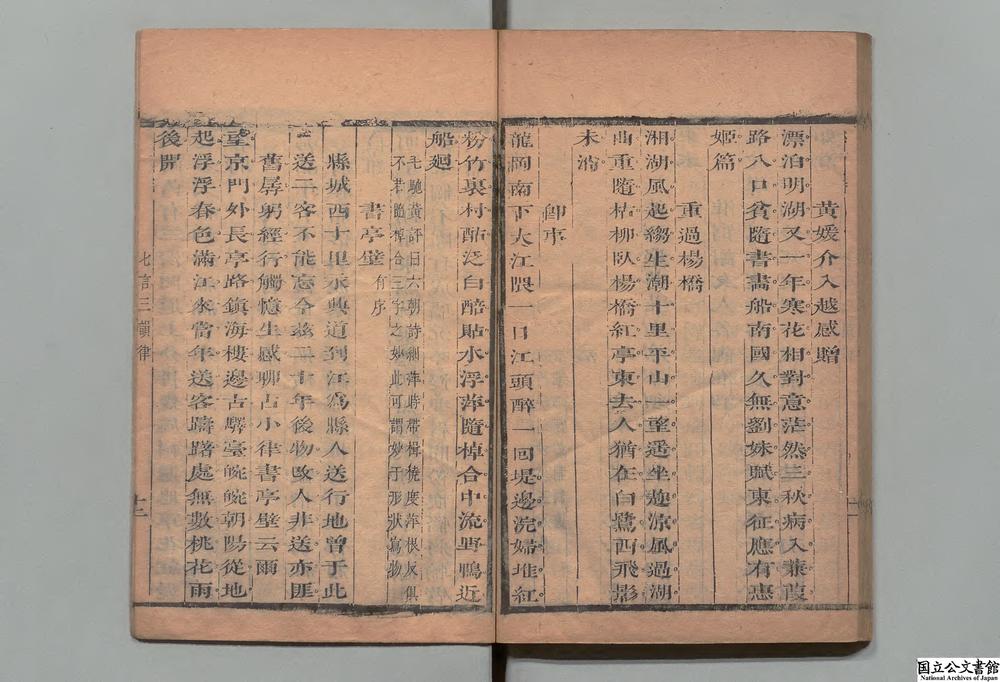 黃媛介入越感贈
漂泊明湖又一年寒花相對意茫然三秋病入蒹葭
路八口貧隨書畫船南國久無劉妹賦東征應有惠
姬篇
重過楊橋
湘湖風起縐生潮十里平山一望遙坐趂涼風過湖
曲重隨枯柳臥楊橋紅亭東去人猶在白鷺西飛影
未消
卽事
龍岡南下大江隈一日江頭醉一回堤邊浣婦堆紅
粉竹裏村酤泛白醅貼水浮萍隨棹合中流野鴨近
船廻
毛馳黃評曰六朝詩劍萍時帶楫橈度萍根反俱
不若隨棹合三字之妙此可謂妙于形狀寫物
書亭壁 有序
縣城西十里永興道到江寫縣人送行地曾于此
送二客不能忘今玆二十年後物改人非送亦匪
舊孱躬經行觸憶生感聊占小律書亭壁云爾
望京門外長亭路鎮海樓邊古驛臺皖皖朝陽從地
起浮浮春色滿江來當年送客躊躇處無數桃花雨
後開
七言三韻律
十二
国立公文書館
National Archives of Japan